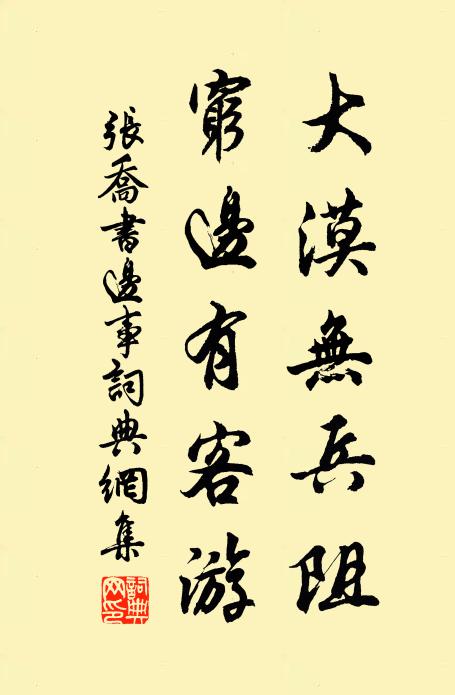 大漠無兵阻
窮邊有客游
張喬書邊事詞典網集